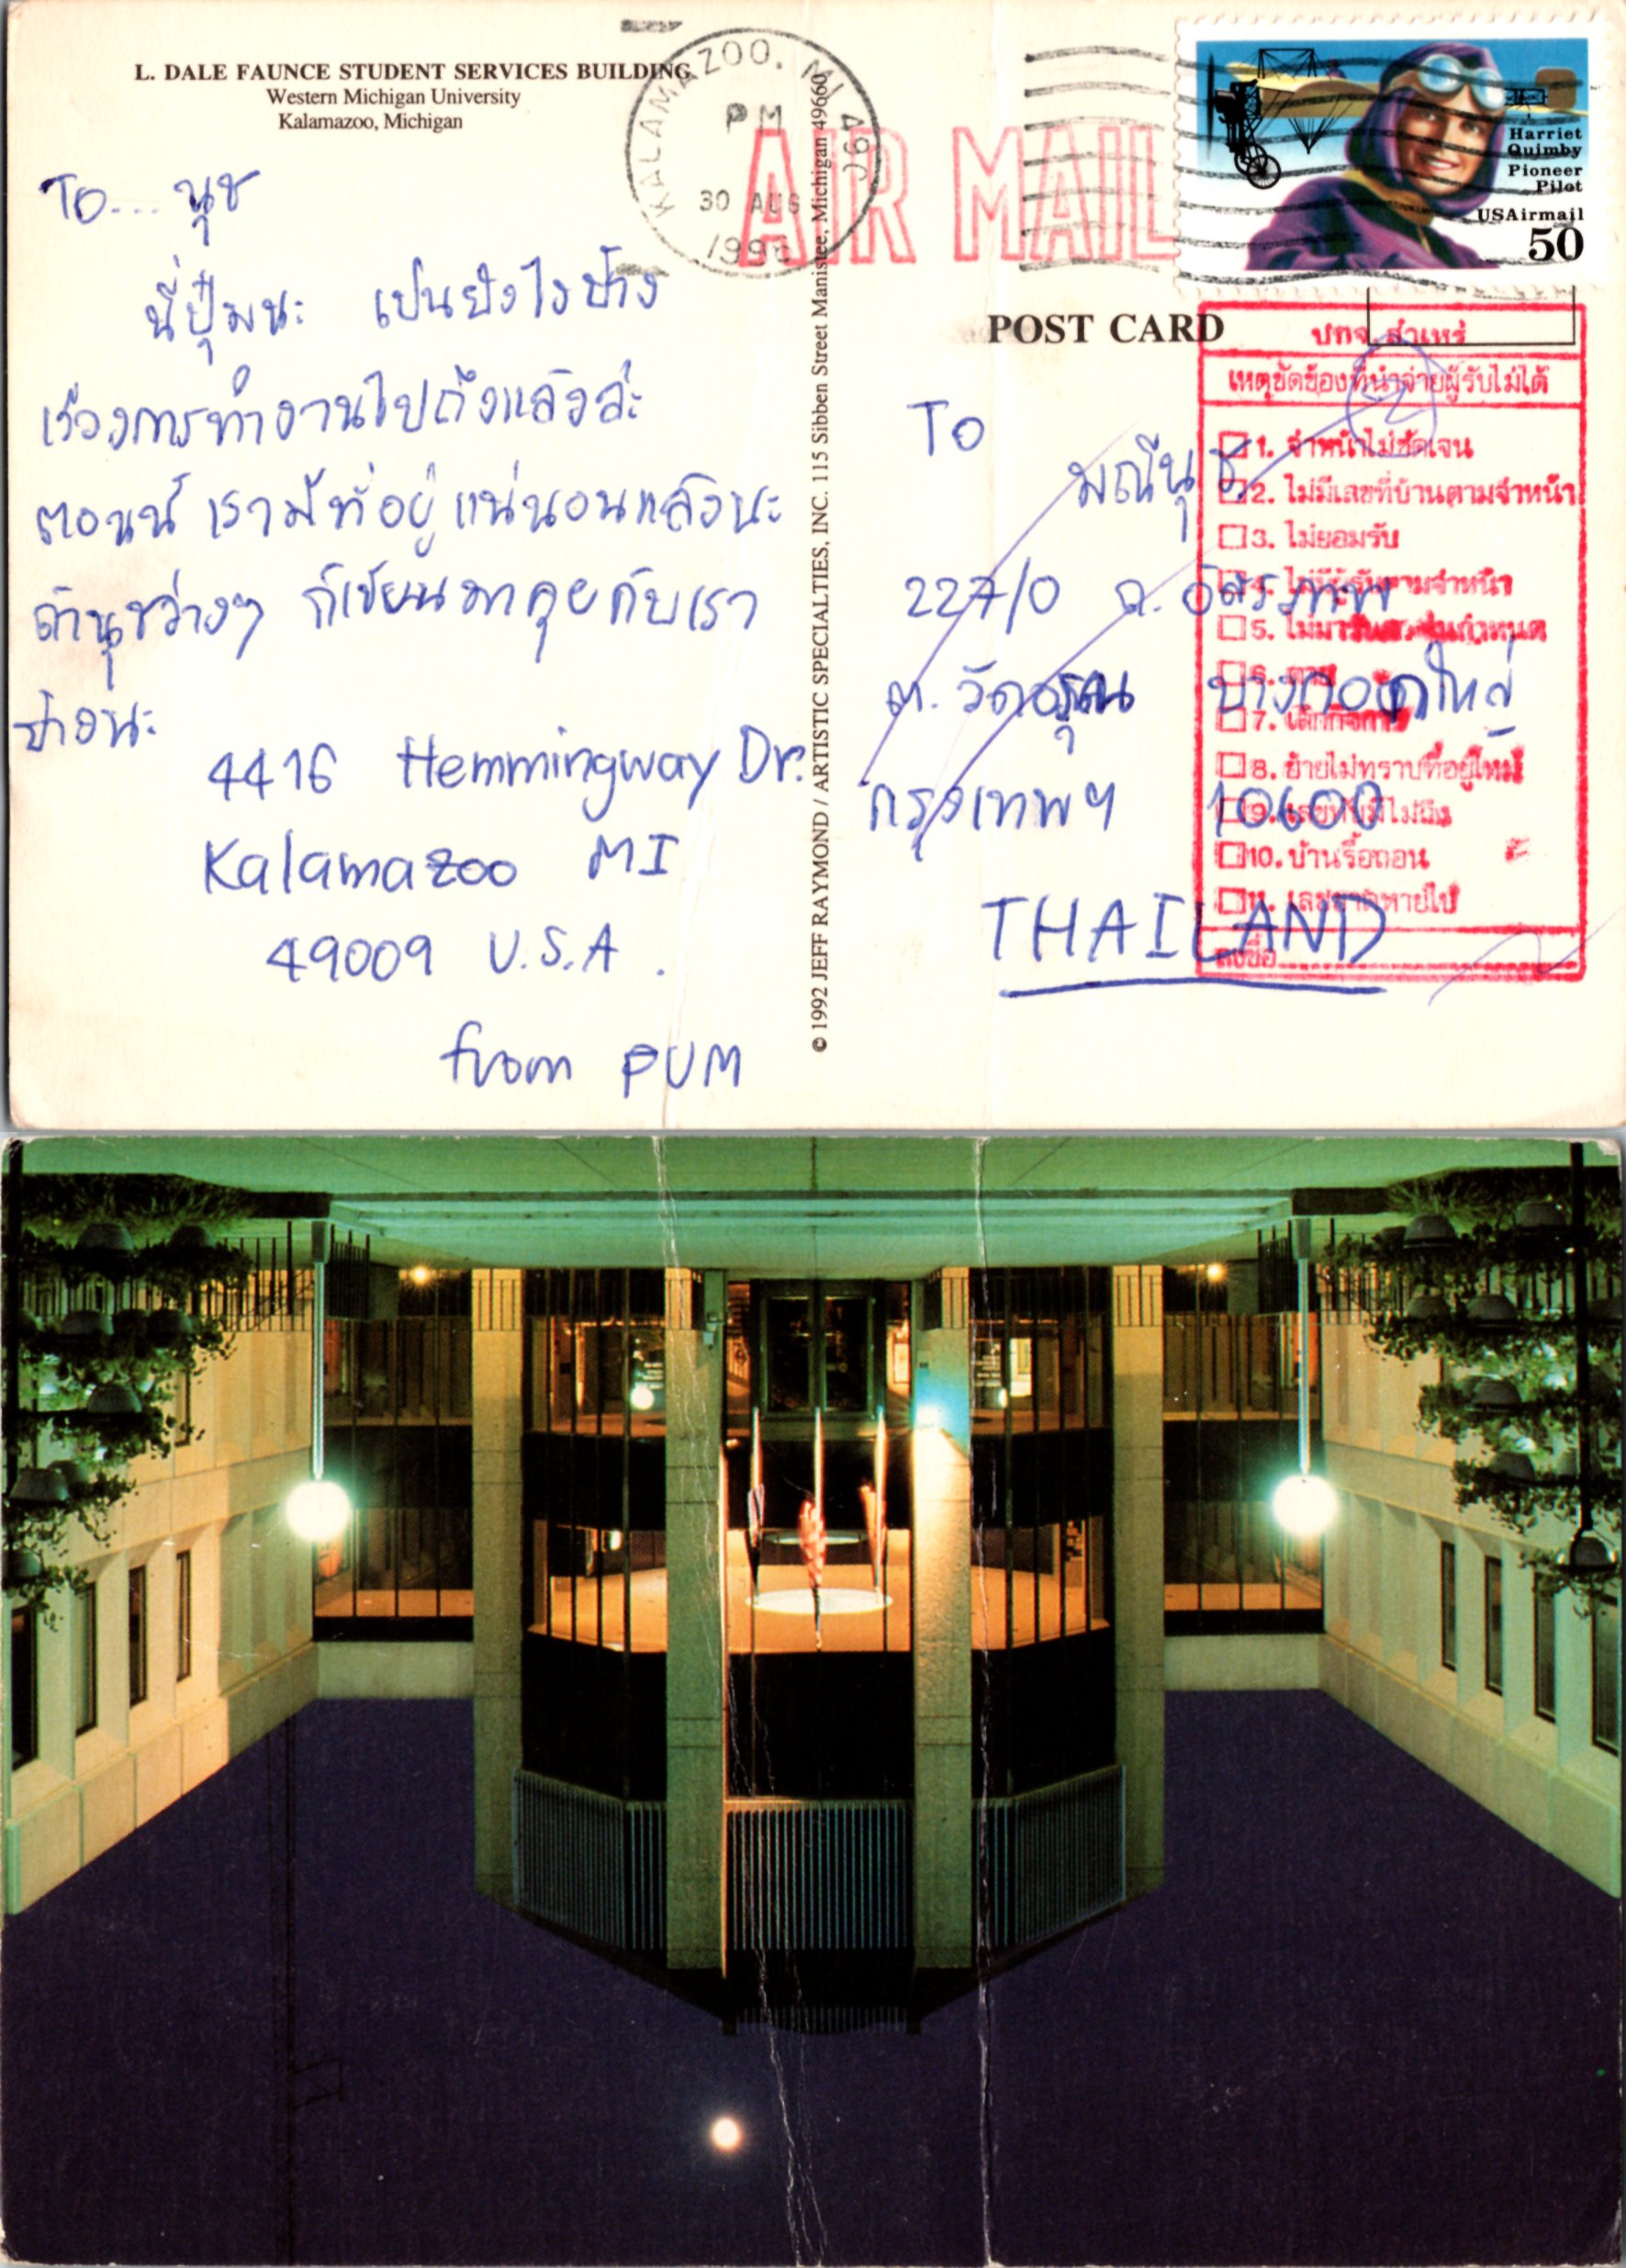 L. DALE FAUNCE STUDENT SERVICES BUILDING
Western Michigan University
Kalamazoo, Michigan
KALAMAZOO, MI 490
PM
30 AUG
199
AIR MAIL
Harriet
Quimby
Pioneer
Pilot
USAirmail
50
TO... นุช
นี่ปุ๋มนะ เป็นยังไงบ้าง
เรื่องการทำงานไปถึงแล้วล่ะ
ตอนนี้ เรามีที่อยู่แน่นอนแล้วนะ
ถ้านุชว่างๆ ก็เขียนมาคุยกับเรา
บ้างนะ
4416 Hemmingway Dr.
Kalamazoo MI
49009 U.S.A.
from PUM
© 1992 JEFF RAYMOND / ARTISTIC SPECIALTIES, INC. 115 Sibben Street Manistee, Michigan 49660
POST CARD
To
มณีนุช
227/0 ถ. อิสรภาพ
ต. วัดอรุณ บางกอกใหญ่
กรุงเทพฯ 10600
THAILAND
ปทจ. สำเหร่
เหตุขัดข้องที่นำจ่ายผู้รับไม่ได้
1. จ่าหน้าไม่ชัดเจน
2. ไม่มีเลขที่บ้านตามจ่าหน้า
3. ไม่ยอมรับ
4. ไม่มีผู้รับตามจ่าหน้า
5. ไม่มารับตามกำหนด
6. ตาย
7. เลิกกิจการ
8. ย้ายไม่ทราบที่อยู่ใหม่
9.
10. บ้านรื้อถอน
11.
ลงชื่อ